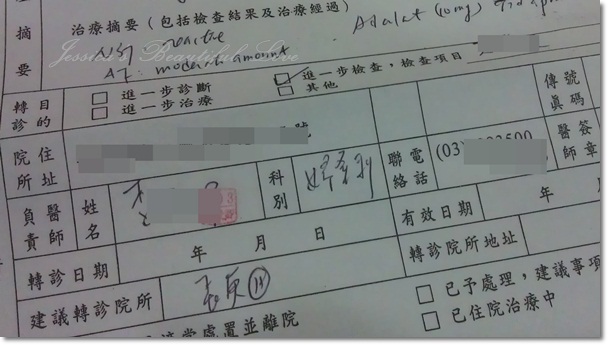 治療摘要(包括檢查結果及治療經過)
摘要
Adalat (10mg)
NST reactive
AF: moderate amount
Jessica's Beautiful Love
轉診目的
□ 進一步診斷
□ 進一步治療
□ 進一步檢查,檢查項目
□ 其他
院所住址
號
傳真號碼
負責醫師
姓名
科別
聯絡電話
(03)
3500
醫師簽章
轉診日期
年 月 日
有效日期
年
建議轉診院所
轉診院所地址
處置並離院
□ 已予處理,建議事項
□ 已住院治療中